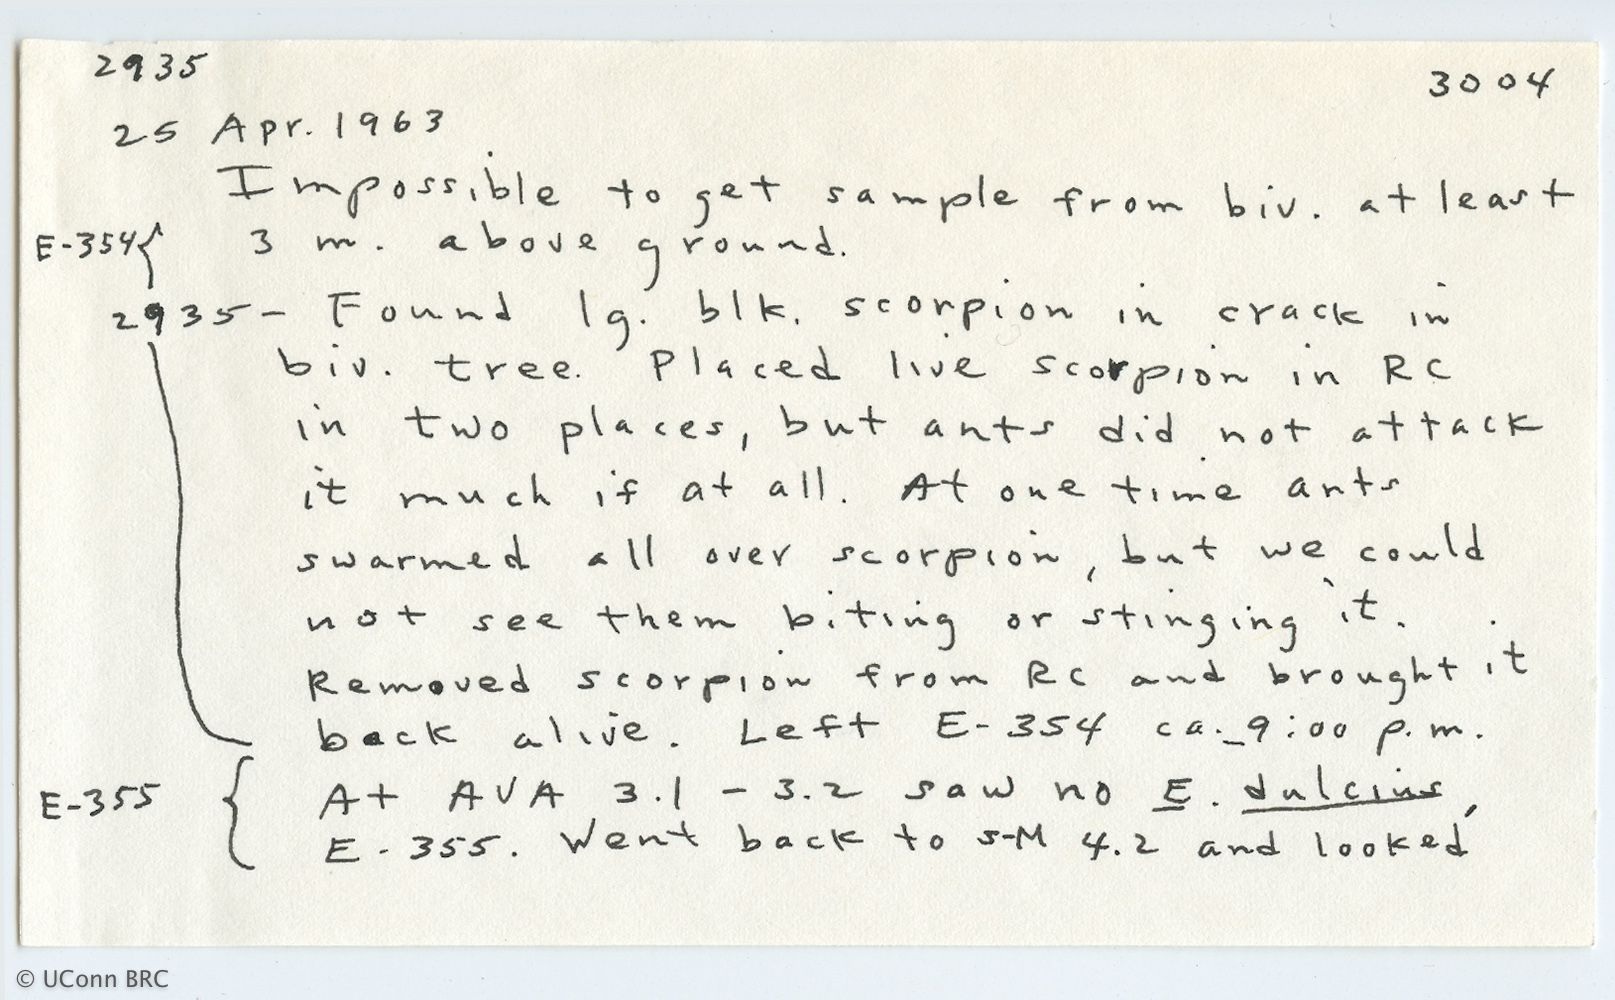 2935
3004
25 Apr. 1963
Impossible to get sample from biv. at least
E-354 { 3 m. above ground.
2935 - Found lg. blk. scorpion in crack in
biv. tree. Placed live scorpion in RC
in two places, but ants did not attack
it much if at all. At one time ants
swarmed all over scorpion, but we could
not see them biting or stinging it.
Removed scorpion from RC and brought it
back alive. Left E-354 ca. 9:00 p.m.
E-355 { At AVA 3.1 - 3.2 saw no E. dulcius,
E-355. Went back to S-M 4.2 and looked
© UConn BRC